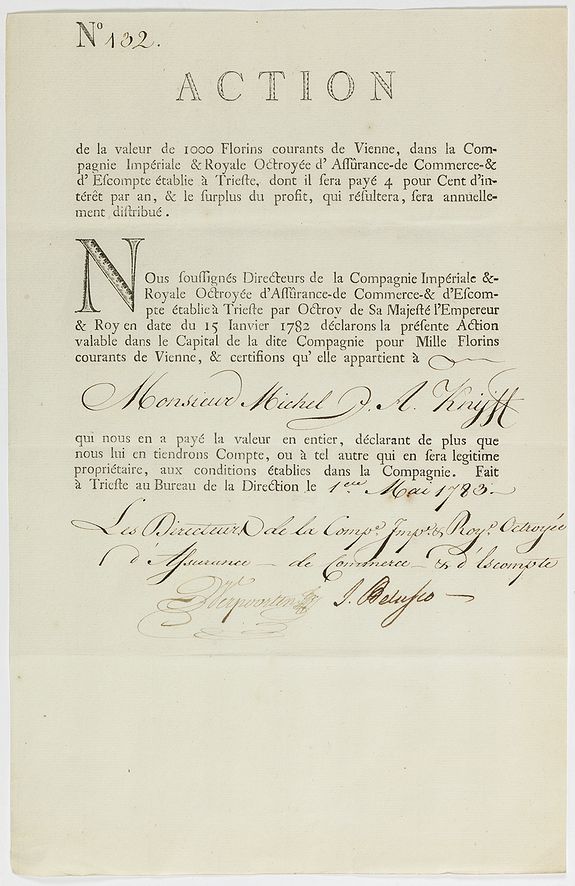 Nº 132.
ACTION
de la valeur de 1000 Florins courants de Vienne, dans la Com-
pagnie Impériale & Royale Octroyée d' Assûrance-de Commerce-&
d' Escompte établie à Trieste, dont il sera payé 4 pour Cent d'in-
térêt par an, & le surplus du profit, qui résultera, sera annuelle-
ment distribué.
NOus soussignés Directeurs de la Compagnie Impériale &
Royale Octroyée d'Assûrance-de Commerce-& d'Escom-
pte établie à Trieste par Octroy de Sa Majesté l'Empereur
& Roy en date du 15 Ianvier 1782 déclarons la présente Action
valable dans le Capital de la dite Compagnie pour Mille Florins
courants de Vienne, & certifions qu' elle appartient à
Monsieur Michel J. A. Knijff
qui nous en a payé la valeur en entier, déclarant de plus que
nous lui en tiendrons Compte, ou à tel autre qui en sera legitime
propriétaire, aux conditions établies dans la Compagnie. Fait
à Trieste au Bureau de la Direction le 1ere Mai 1783.
Les Directeurs de la Compe. Impe. & Roye. Octroyée
d'Assurance - de Commerce - & d'Escompte
J. Belusco